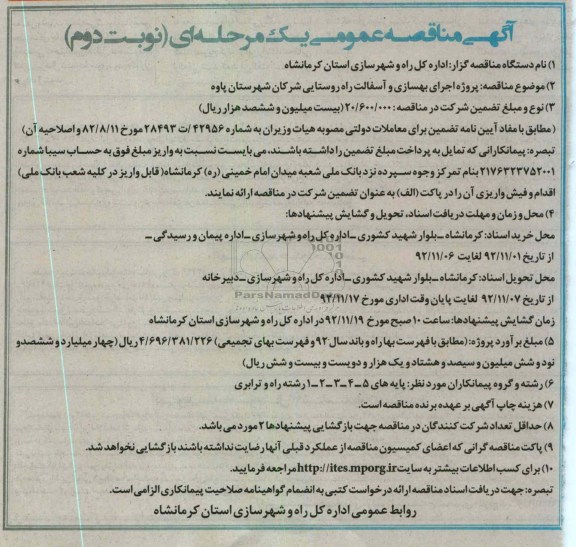 آگهی مناقصه عمومی یک مرحله‌ای (نوبت دوم)
۱) نام دستگاه مناقصه گزار: اداره کل راه و شهرسازی استان کرمانشاه
۲) موضوع مناقصه: پروژه اجرای بهسازی و آسفالت راه روستایی شرکان شهرستان پاوه
۳) نوع و مبلغ تضمین شرکت در مناقصه: ۲۰/۶۰۰/۰۰۰ (بیست میلیون و ششصد هزار ریال)
(مطابق با مفاد آیین نامه تضمین برای معاملات دولتی مصوبه هیات وزیران به شماره ۴۲۹۵۶ /ت ۲۸۴۹۳ مورخ ۸۲/۸/۱۱ و اصلاحیه آن)
تبصره: پیمانکارانی که تمایل به پرداخت مبلغ تضمین را داشته باشند، می بایست نسبت به واریز مبلغ فوق به حساب سیبا شماره
۲۱۷۶۳۲۳۷۵۲۰۰۱ بنام تمرکز وجوه سپرده نزد بانک ملی شعبه میدان امام خمینی (ره) کرمانشاه (قابل واریز در کلیه شعب بانک ملی)
اقدام و فیش واریزی آن را در پاکت (الف) به عنوان تضمین شرکت در مناقصه ارائه نمایند.
۴) محل و زمان و مهلت دریافت اسناد، تحویل و گشایش پیشنهادها:
محل خرید اسناد: کرمانشاه ـ بلوار شهید کشوری ـ اداره کل راه و شهرسازی ـ اداره پیمان و رسیدگی ـ
از تاریخ ۹۲/۱۱/۰۱ لغایت ۹۲/۱۱/۰۶
محل تحویل اسناد: کرمانشاه ـ بلوار شهید کشوری ـ اداره کل راه و شهرسازی ـ دبیرخانه
از تاریخ ۹۲/۱۱/۰۷ لغایت پایان وقت اداری مورخ ۹۲/۱۱/۱۷
ParsNamadData
زمان گشایش پیشنهادها: ساعت ۱۰ صبح مورخ ۹۲/۱۱/۱۹ در اداره کل راه و شهرسازی استان کرمانشاه
۵) مبلغ برآورد پروژه: (مطابق با فهرست بها راه و باند سال ۹۲ و فهرست بهای تجمیعی) ۴/۶۹۶/۳۸۱/۲۲۶ ریال (چهار میلیارد و ششصدو
نود و شش میلیون و سیصد و هشتاد و یک هزار و دویست و بیست و شش ریال)
۶) رشته و گروه پیمانکاران مورد نظر: پایه های ۵ـ۴ـ۳ـ۲ـ۱ رشته راه و ترابری
۷) هزینه چاپ آگهی بر عهده برنده مناقصه است.
۸) حداقل تعداد شرکت کنندگان در مناقصه جهت بازگشایی پیشنهادها ۲ مورد می باشد.
۹) پاکت مناقصه گرانی که اعضای کمیسیون مناقصه از عملکرد قبلی آنها رضایت نداشته باشند بازگشایی نخواهد شد.
۱۰) برای کسب اطلاعات بیشتر به سایت http://ites.mporg.ir مراجعه فرمایید.
تبصره: جهت دریافت اسناد مناقصه ارائه درخواست کتبی به انضمام گواهینامه صلاحیت پیمانکاری الزامی است.
روابط عمومی اداره کل راه و شهرسازی استان کرمانشاه